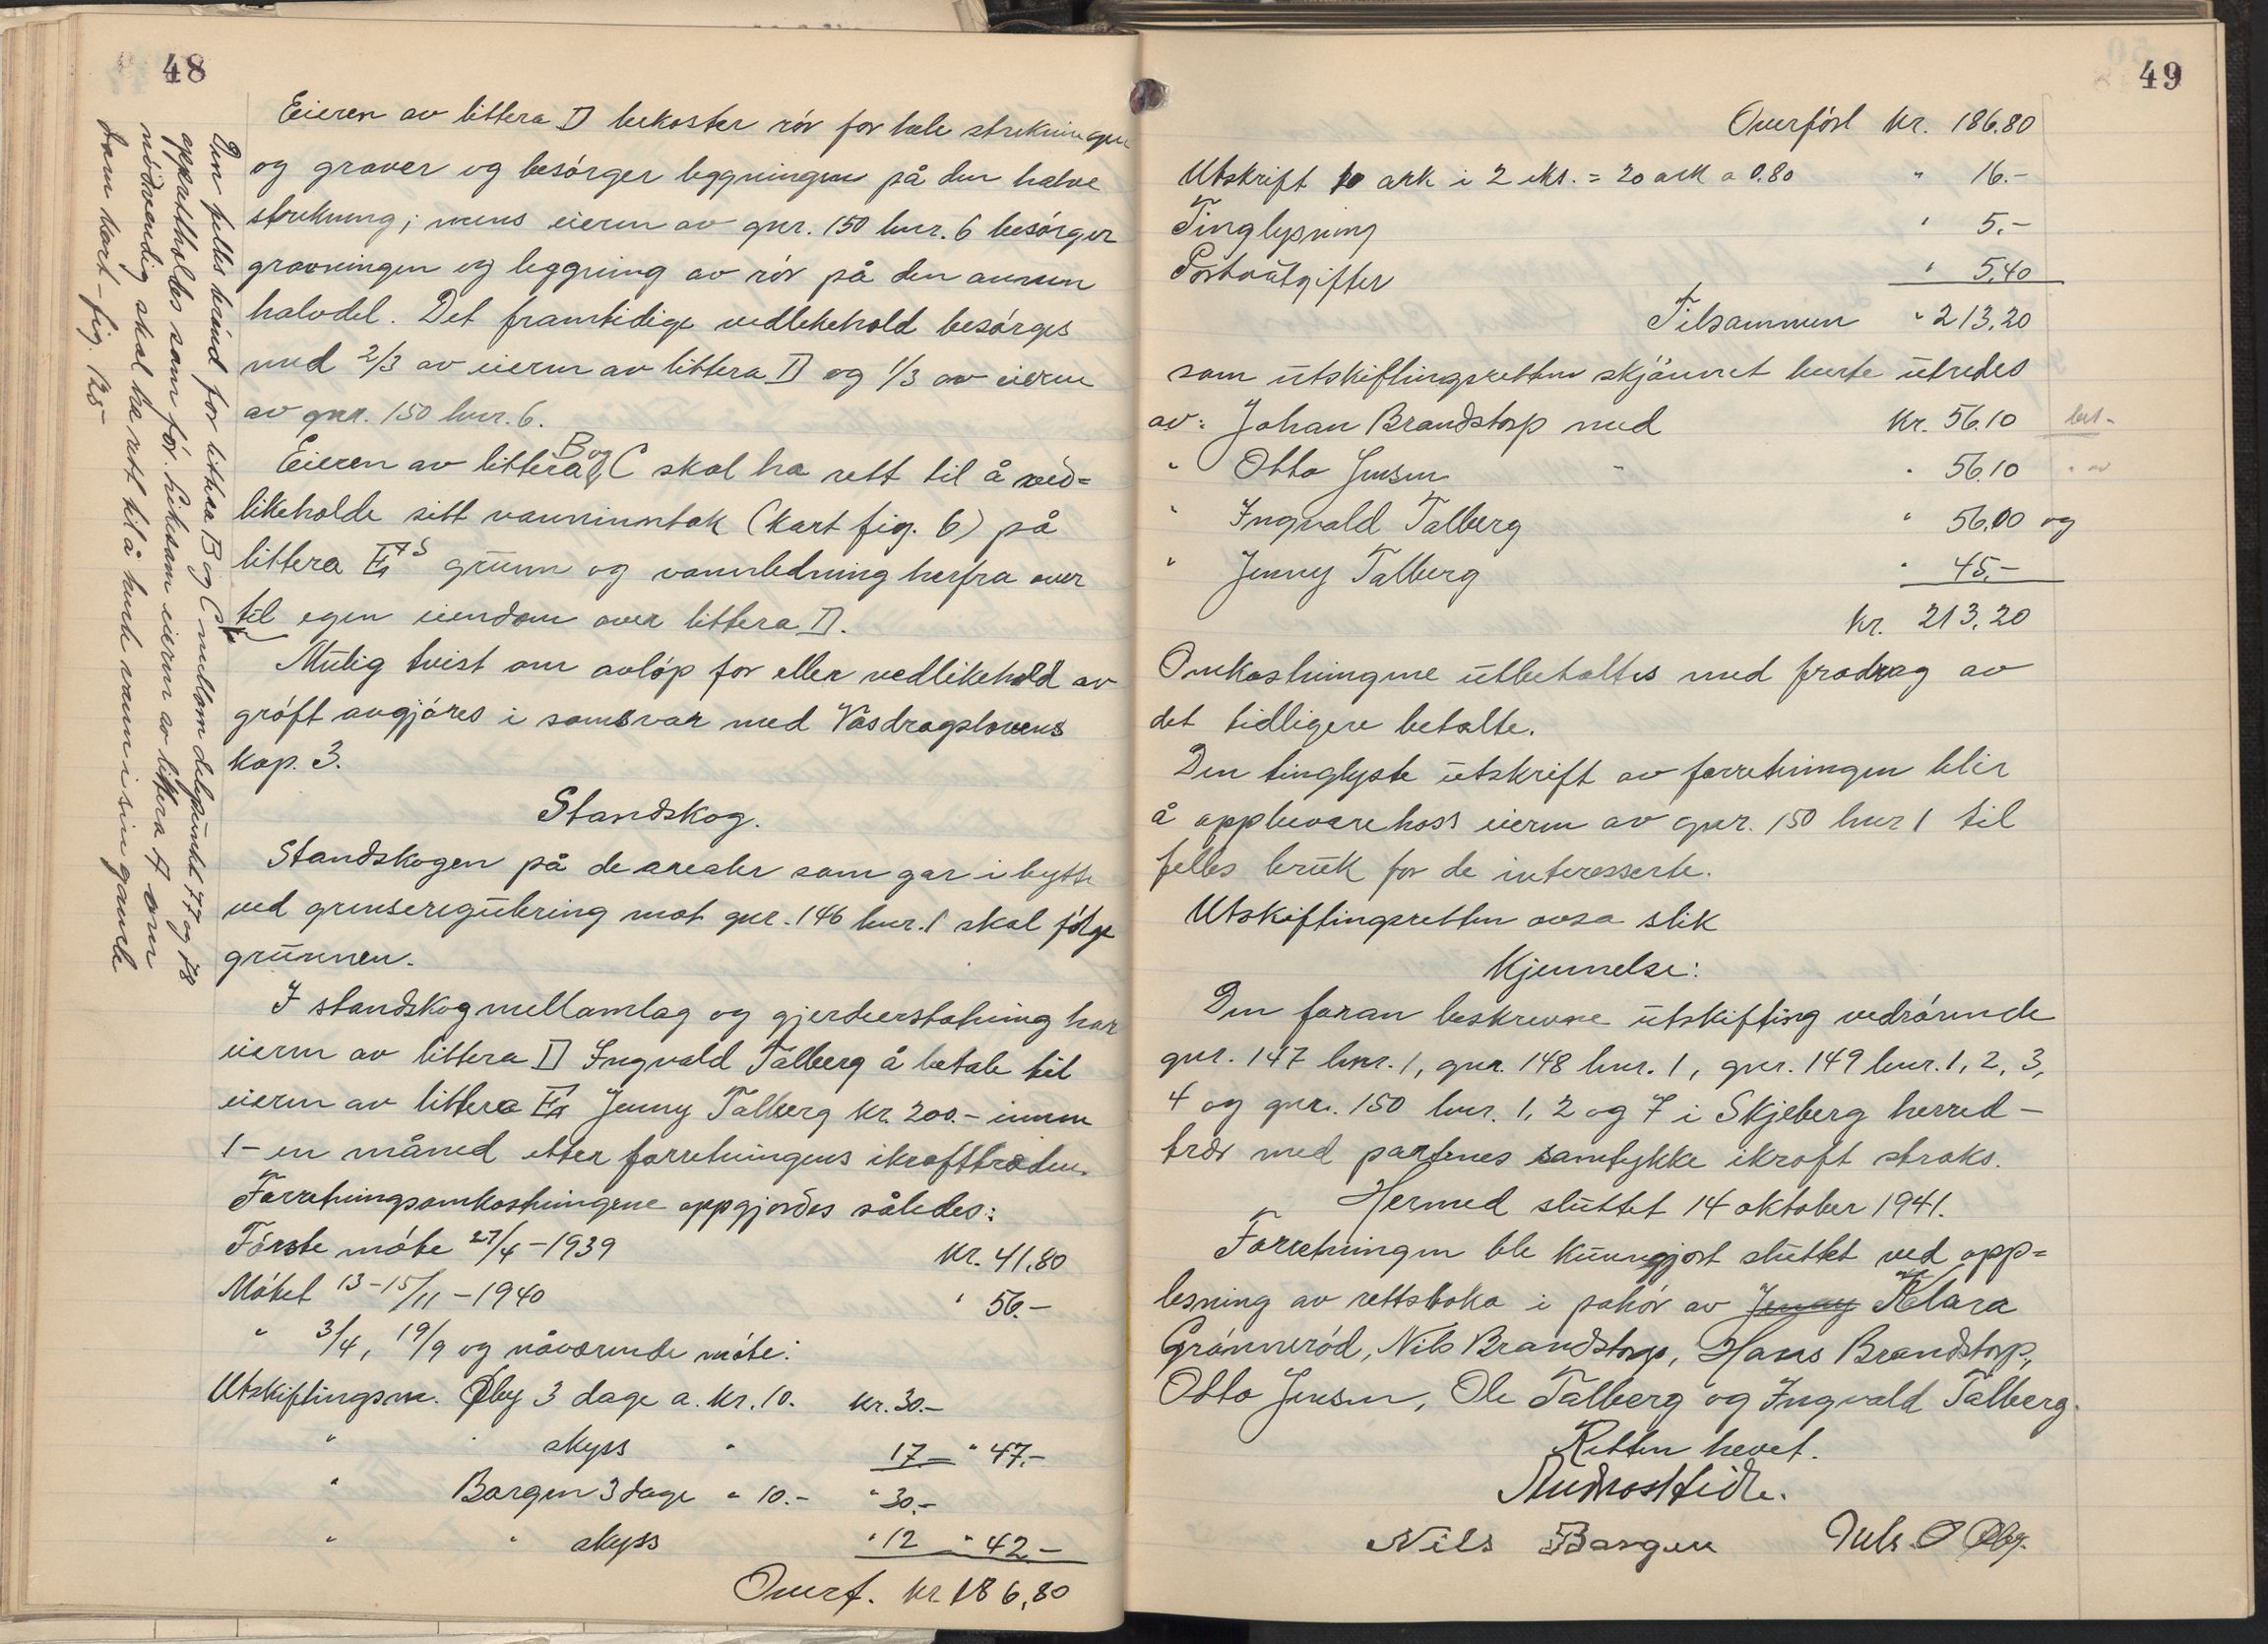 48
Eieren av littera D bekoster rör for hele strekningen
og graver og besörger leggningen på den halve
strekning; mens eieren av gnr. 150 bnr. 6 besörger
gravningen og leggning av rör på den annen
halvdel. Det framtidige vedlikehold besörges
med 2/3 av eieren av littera D og 1/3 av eieren
av gnr. 150 bnr. 6.
Eieren av littera B og C skal ha rett til å ved=
likeholde sitt vanninntak (kart fig. 6) på
littera E's grunn og vannledning herfra over
til egen eiendom over littera D.
Mulig tvist om avlöp for eller vedlikehold av
gröft avgjöres i samsvar med Vasdragslovens
kap. 3.
Standskog.
Standskogen på de arealer som går i bytte
ved grenseregulering mot gnr. 146 bnr. 1 skal fölge
grunnen.
I standskogmellomlag og gjerdeerstatning har
eieren av littera D Ingvald Talberg å betale til
eieren av littera E Jenny Talberg kr. 200.- innen
1- en måned etter forretningens ikrafttreden.
Forretningsomkostningene oppgjordes således:
Förste möte 27/4-1939 kr. 41,80
Mötet 13-15/11-1940 " 56.-
" 3/4, 19/9 og nåværende möte:
Utskiftingsm. Øby 3 dage a. kr. 10. kr. 30.-
" " skyss " 17.- " 47.-
" Borgen 3 dage " 10.- " 30.-
" " skyss " 12 " 42.-
Overf. kr 186,80
Den felles brönd for littera B og C mellom delepunkt 77 og 78
opprettholdes som för. Liksom eieren av littera A som
nödvendig skal ha rett til å hente vann i sin gamle
dam kart-fig. 125
49
Overfört kr. 186.80
Utskrift 10 ark i 2 eks. = 20 ark a 0.80 " 16.-
Tinglysning " 5.-
Portoutgifter " 5,40
Tilsammen " 213,20
som utskiftingsretten skjönnet burte utredes
av: Johan Brandstorp med kr. 56.10 bet.
" Otto Jensen " " 56.10
" Ingvald Talberg " 56.00 og
" Jenny Talberg " 45.-
kr. 213,20
Omkostningene utbetaltes med fradrag av
det tidligere betalte.
Den tinglyste utskrift av forretningen blir
å oppbevare hoss eieren av gnr. 150 bnr 1 til
felles bruk for de interesserte.
Utskiftingsretten avsa slik
Kjennelse:
Den foran beskrevne utskifting vedrörende
gnr. 147 bnr. 1, gnr. 148 bnr. 1, gnr. 149 bnr. 1, 2, 3,
4 og gnr. 150 bnr. 1, 2 og 7 i Skjeberg herred -
trær med partenes samtykke ikraft straks.
Hermed sluttet 14 oktober 1941.
Forretningen ble kunngjort sluttet ved opp=
lesning av rettsboka i påhör av Jenny Klara
Grönneröd, Nils Brandstorp, Hans Brandstorp,
Otto Jensen, Ole Talberg og Ingvald Talberg.
Retten hevet.
Nils Borgen Nils O Øby.